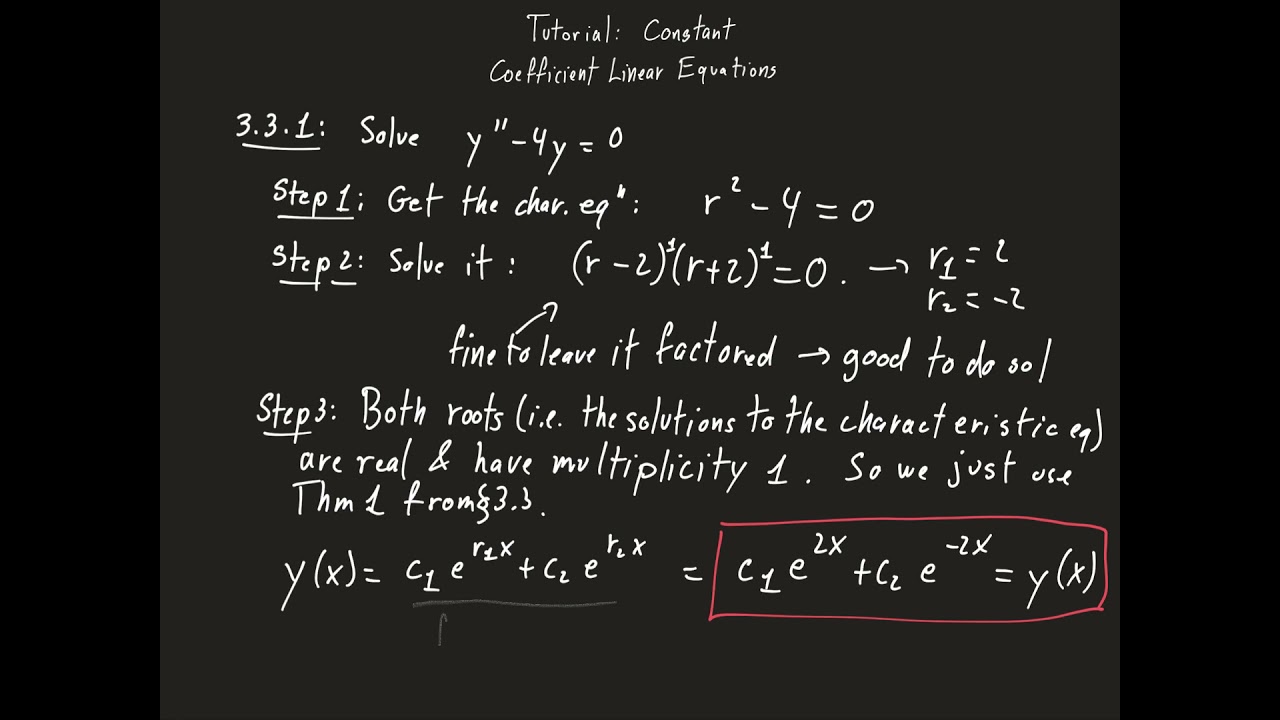 Tutorial: Constant
Coefficient Linear Equations
3.3.1: Solve y" - 4y = 0
Step 1: Get the char. eq": r² - 4 = 0
Step 2: Solve it: (r - 2)¹(r + 2)¹ = 0. → r₁ = 2
r₂ = -2
fine to leave it factored → good to do so!
Step 3: Both roots (i.e. the solutions to the characteristic eq)
are real & have multiplicity 1. So we just use
Thm 1 from § 3.3.
y(x) = c₁ e^{r₁x} + c₂ e^{r₂x} = c₁ e^{2x} + c₂ e^{-2x} = y(x)